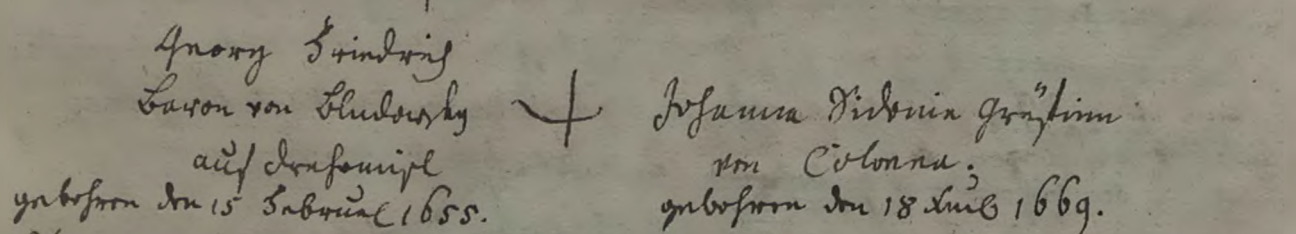 Georg Friedrich
Baron von Bludowsky
auf Drahomisl
gebohren den 15 Februar 1655.
Johanna Sidonia Gräffinn
von Colonna.
gebohren den 18 1669.